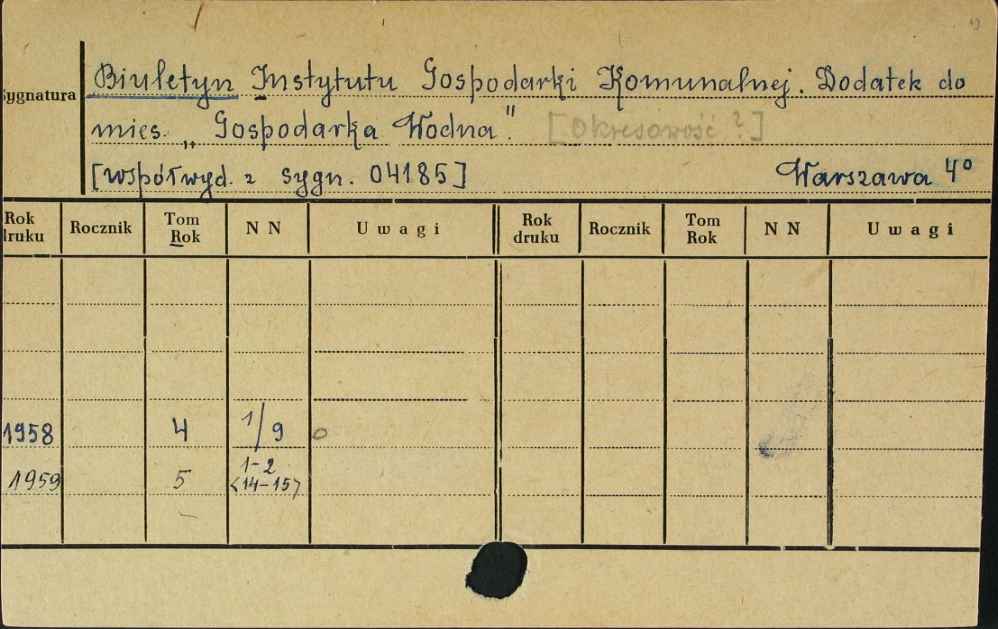 Biuletyn Instytutu Gospodarki Komunalnej. Dodatek do
Sygnatura
mies. „Gospodarka Wodna". [Okresowość?]
[współwyd. z sygn. 04185] Warszawa 4°
Rok druku Rocznik Tom Rok NN Uwagi Rok druku Rocznik Tom Rok NN Uwagi
1958 4 1/9
1959 5 1-2 <14-15>